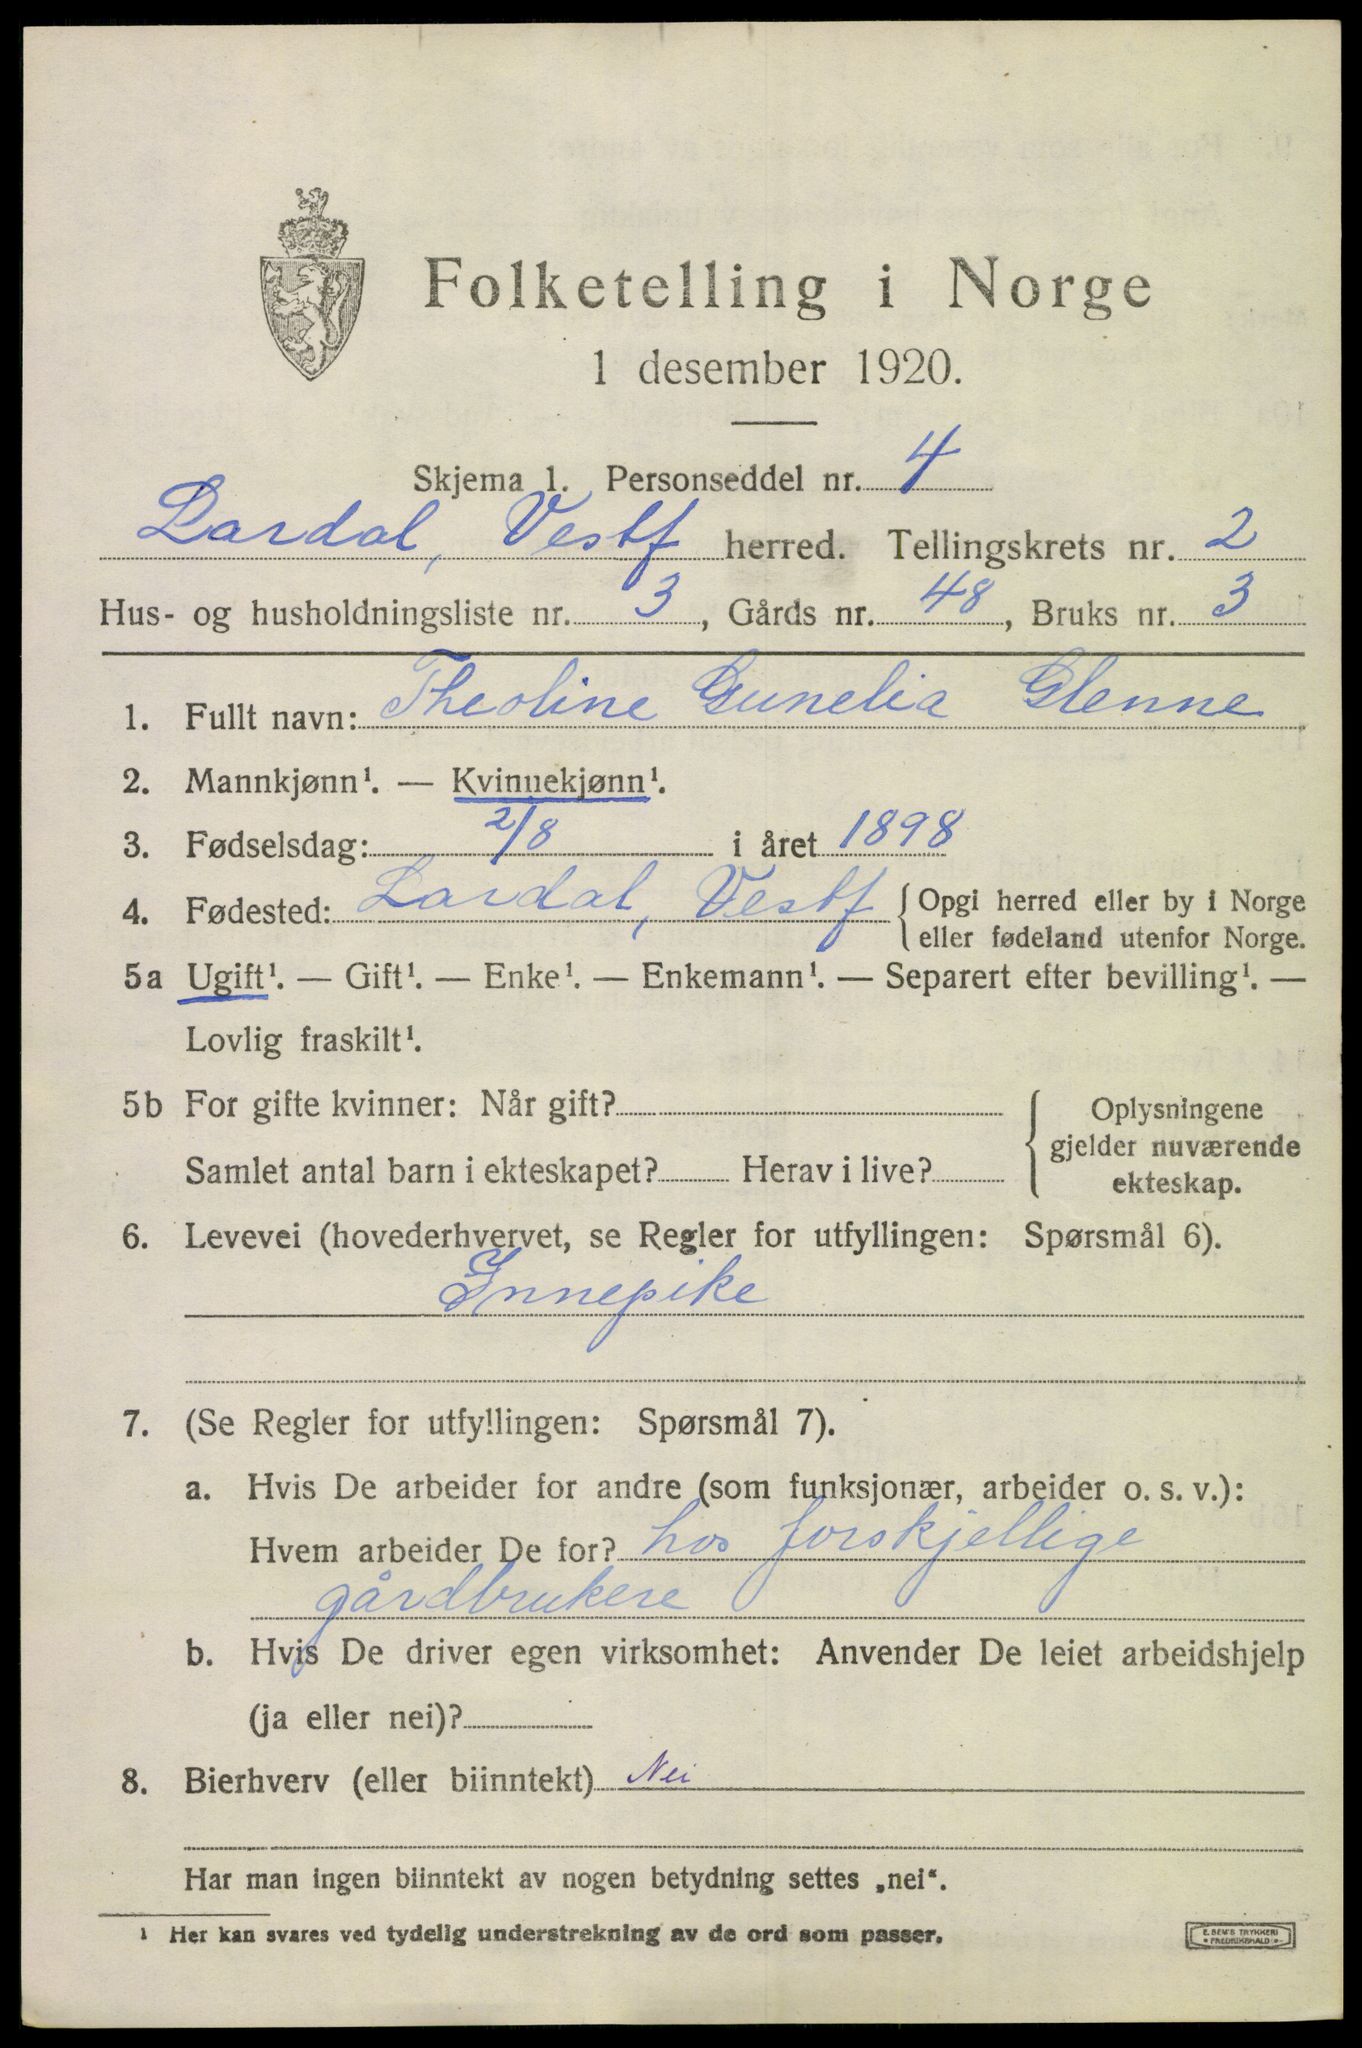 Folketelling i Norge
1 desember 1920.
Skjema 1. Personseddel nr. 4
Lardal, Vestf herred. Tellingskrets nr. 2
Hus- og husholdningsliste nr. 3, Gårds nr. 48, Bruks nr. 3
1. Fullt navn: Theoline Gunelia Glenne
2. Mannkjønn¹. — Kvinnekjønn¹.
3. Fødselsdag: 2/8 i året 1898
4. Fødested: Lardal, Vestf { Opgi herred eller by i Norge
eller fødeland utenfor Norge.
5a Ugift¹. — Gift¹. — Enke¹. — Enkemann¹. — Separert efter bevilling¹. —
Lovlig fraskilt¹.
5b For gifte kvinner: Når gift?
Samlet antal barn i ekteskapet? Herav i live?
{ Oplysningene
gjelder nuværende
ekteskap.
6. Levevei (hovederhvervet, se Regler for utfyllingen: Spørsmål 6).
Innepike
7. (Se Regler for utfyllingen: Spørsmål 7).
a. Hvis De arbeider for andre (som funksjonær, arbeider o. s. v.):
Hvem arbeider De for? hos forskjellige
gårdbrukere
b. Hvis De driver egen virksomhet: Anvender De leiet arbeidshjelp
(ja eller nei)?
8. Bierhverv (eller biinntekt) Nei
Har man ingen biinntekt av nogen betydning settes „nei“.
¹ Her kan svares ved tydelig understrekning av de ord som passer.
E. SEM'S TRYKKERI
FREDRIKSHALD